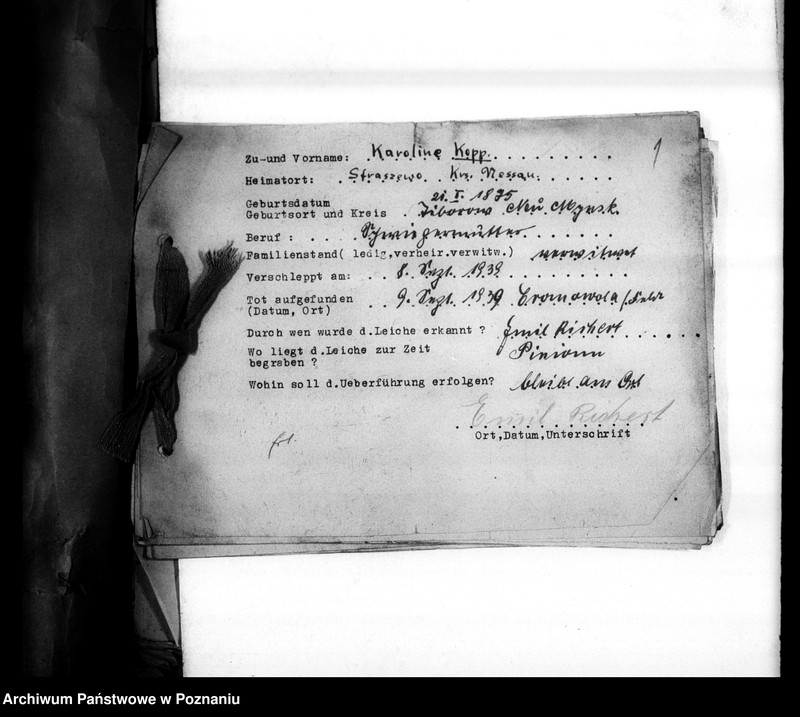 1
Zu-und Vorname: Karoline Kopp.
Heimatort: Straszewo Krs. Nessau.
Geburtsdatum 21. I. 1875
Geburtsort und Kreis
Beruf : Schwiegermutter
Familienstand( ledig,verheir.verwitw.) verwitwet
Verschleppt am: 8. Sept. 1939
Tot aufgefunden 9. Sept. 1939
(Datum, Ort)
Durch wen wurde d.Leiche erkannt ? Emil Richert
Wo liegt d.Leiche zur Zeit
begraben ?
Wohin soll d.Ueberführung erfolgen? bleibt am Ort
Emil Richert
Ort,Datum,Unterschrift
Archiwum Państwowe w Poznaniu